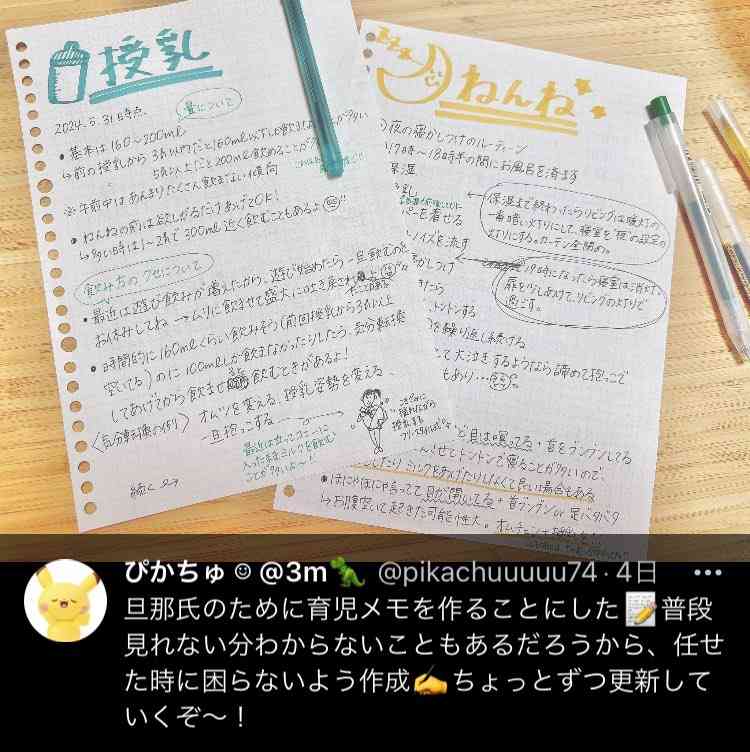 授乳
2024.5.31時点
量について
• 基本は160〜200ml
↳前の授乳から3h以内だと160ml以下しか飲まない
5h以上だと200ml飲めることが
※午前中はあんまりたくさん飲まない傾向
• ねんねの前は欲しがるだけあげてOK!
↳多い時は1〜2hで300ml近く飲むこともあるよ
飲み方のクセについて
• 最近は遊び飲みが増えたから、遊び始めたら一旦飲むの
お休みしてね → ムリに飲ませて盛大に吐き戻され
• 時間的に160mlくらい飲みそう(前回授乳から3h以上
空いてる)のに100mlしか飲まなかったりしたら、気分転換
してあげてから飲ませ 飲むときがあるよ!
〈気分転換の例〉 オムツを変える、授乳姿勢を変える、
一旦抱っこする
最近は立ってユニーに
入ったままミルクを飲む
ことが多いよー!
続く
ねんね
夜の寝かしつけのルーティン
17時〜18時半の間にお風呂を済ます
保湿
着せる
ノイズを流す
かしつけ
トントンする
を繰り返し続ける
て大泣きするようなら諦めて抱っこで
もあり…
保湿まで終わったらリビングは暖灯の
一番暗い灯りにして、寝室を夜の設定の
灯りにする。カーテン全閉め。
19時になったら寝室は消灯、
扉を少しあけて、リビングの灯りで
過ごす。
ど目は瞑ってる+首をブンブンしてる
せてトントンで寝ることが多いので、
したりミルクをあげたりしなくて良い場合もある
• ほにゃほにゃ言ってて目が開いてる+首ブンブンor足バタバタ
↳お腹空いて起きた可能性大。オムチェン+授乳を!
ぴかちゅ☺︎@3m🦖 @pikachuuuuu74·4日 •••
旦那氏のために育児メモを作ることにした📝普段
見れない分わからないこともあるだろうから、任せ
た時に困らないよう作成✍️ちょっとずつ更新して
いくぞ〜！